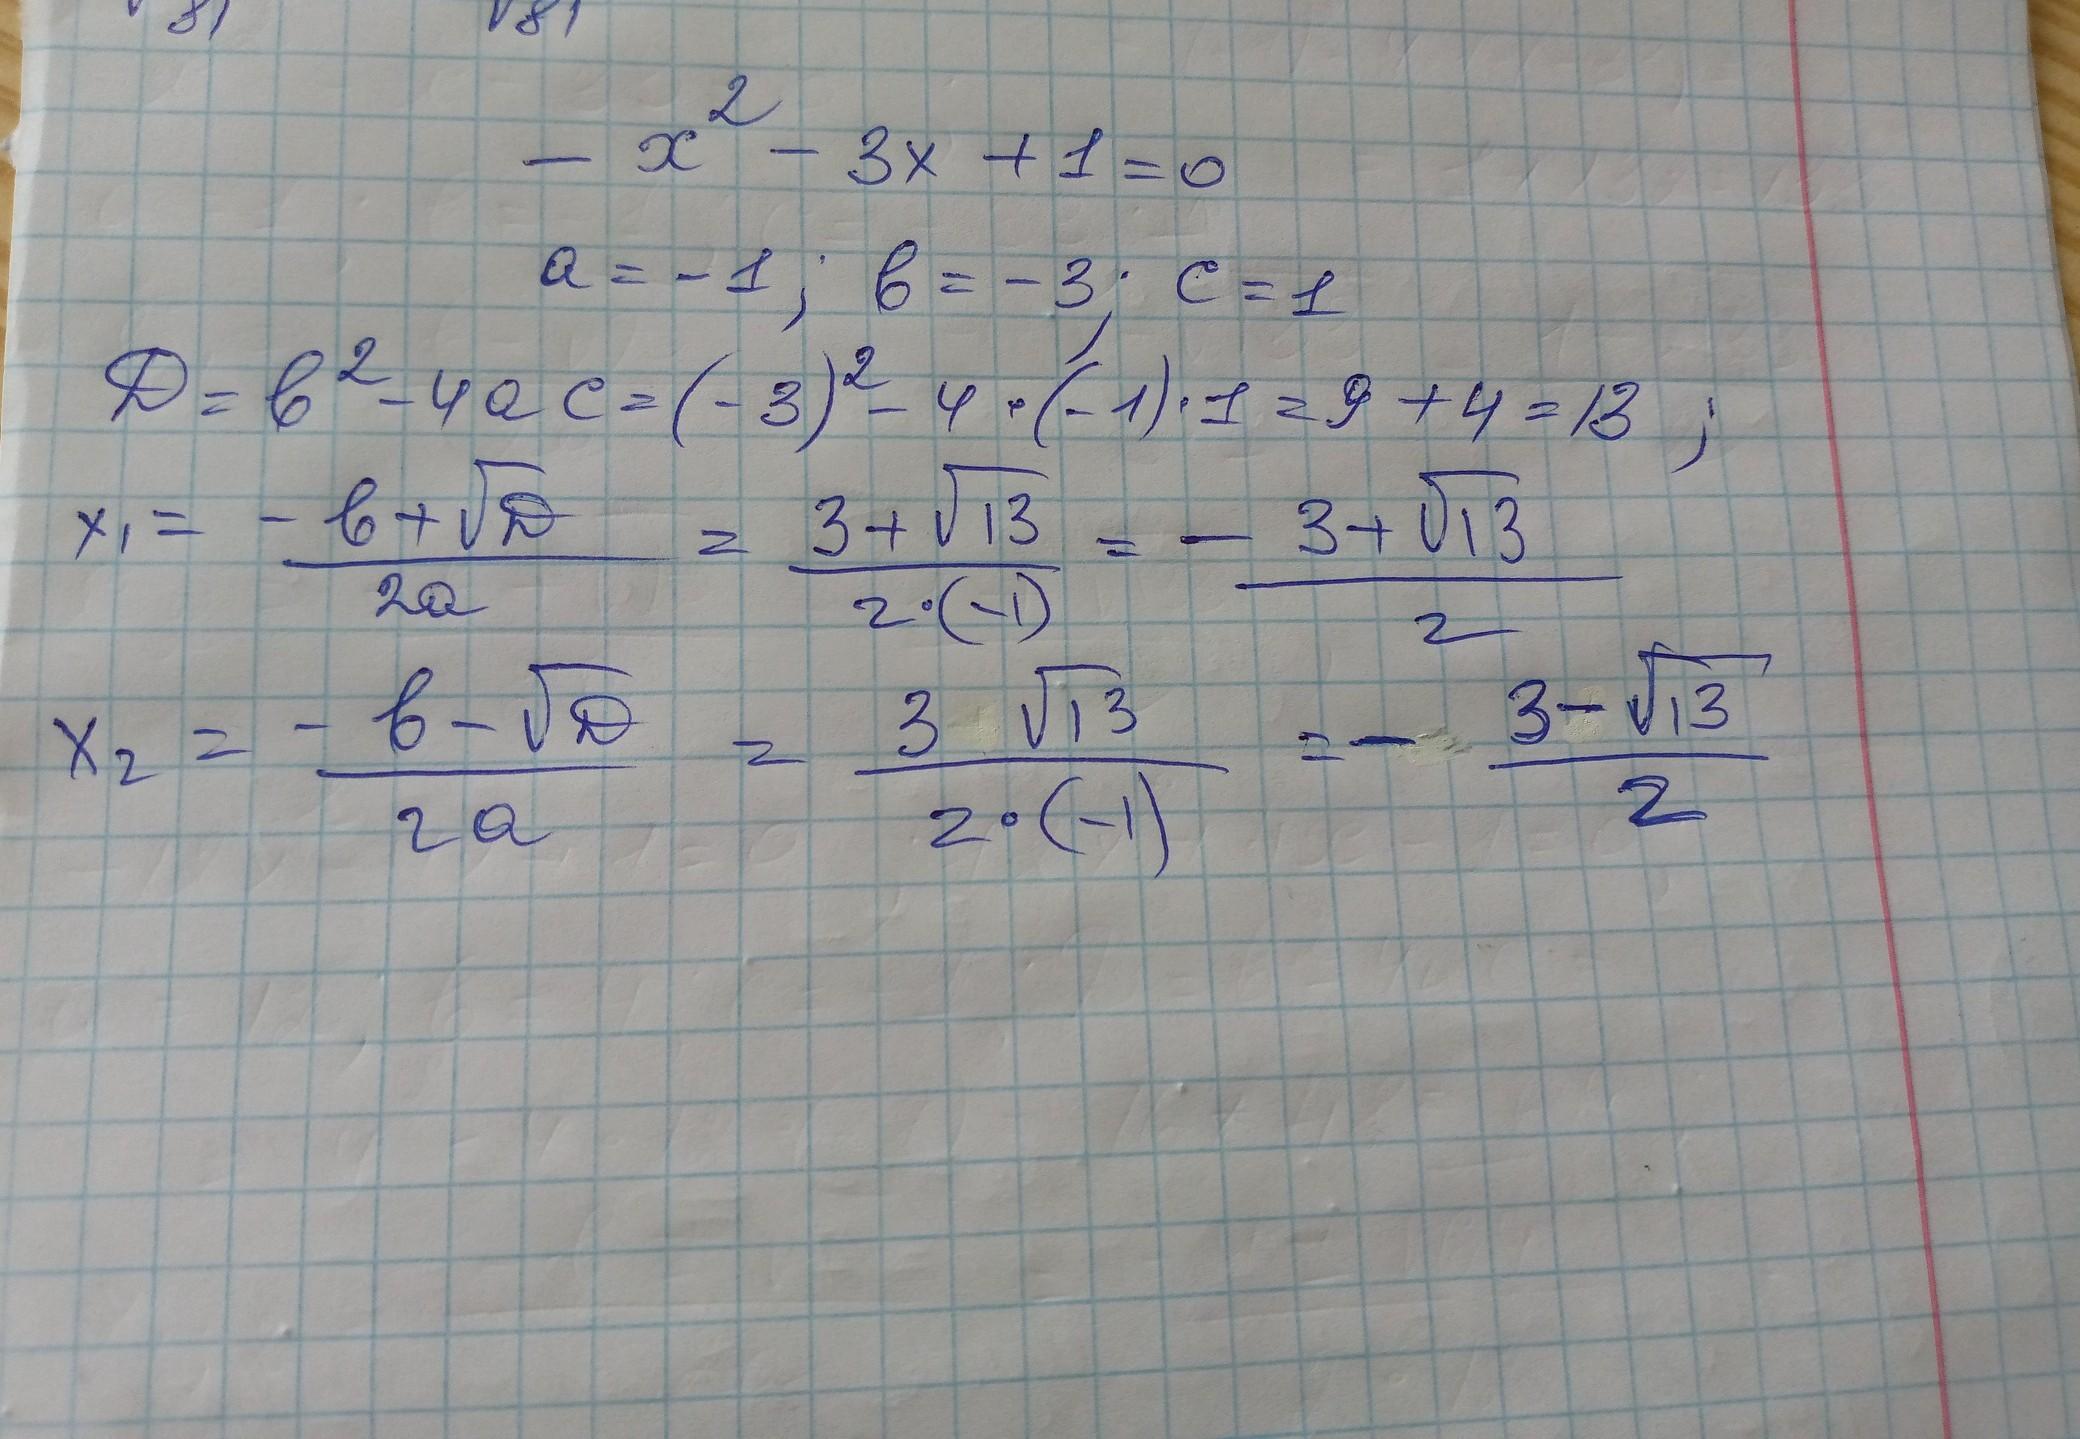 √81 √81
- x² - 3x + 1 = 0
a = -1; b = -3; c = 1
D = b² - 4ac = (-3)² - 4·(-1)·1 = 9 + 4 = 13;
x₁ = (-b + √D)/(2a) = (3 + √13)/(2·(-1)) = - (3 + √13)/2
x₂ = (-b - √D)/(2a) = (3 √13)/(2·(-1)) = - (3 - √13)/2